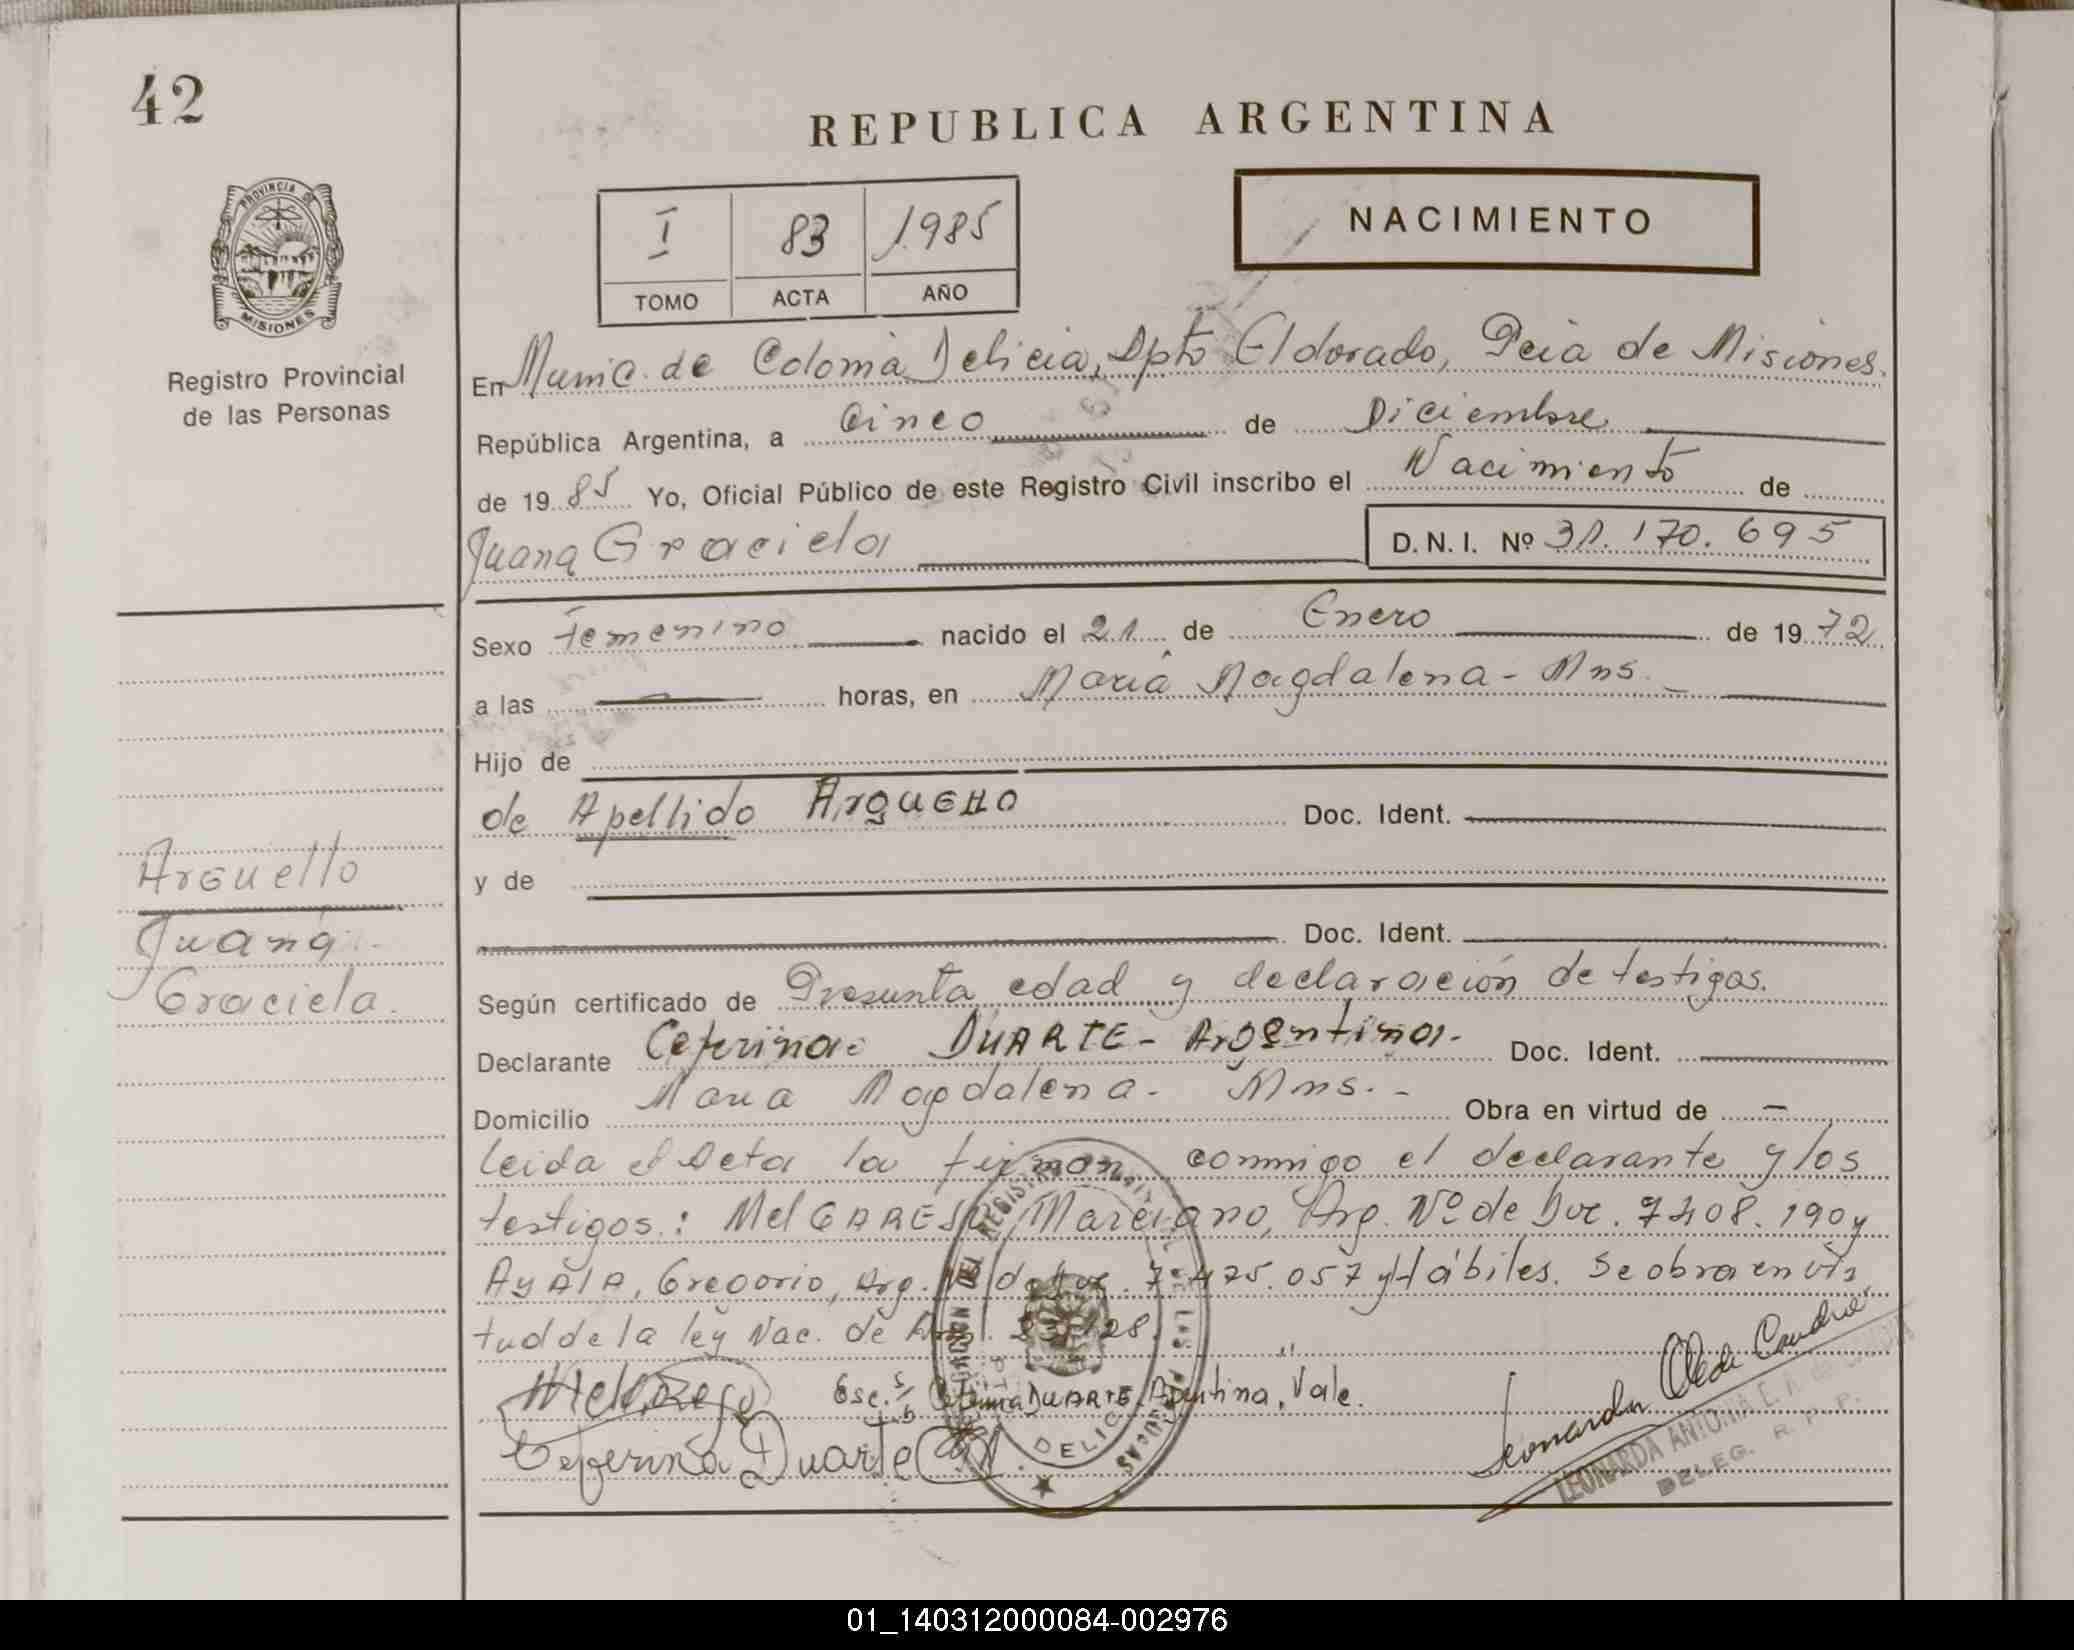 42
REPUBLICA ARGENTINA
PROVINCIA DE MISIONES
Registro Provincial
de las Personas
I 83 1985
TOMO ACTA AÑO
NACIMIENTO
En Munic. de Colonia Delicia, Dpto Eldorado, Pcia de Misiones.
República Argentina, a Cinco de Diciembre
de 1985 Yo, Oficial Público de este Registro Civil inscribo el Nacimiento de
Juana Graciela D.N.I. Nº 31.170.695
Sexo Femenino nacido el 21 de Enero de 1972
a las horas, en Maria Magdalena - Mns.
Hijo de
de Apellido Arguello Doc. Ident.
y de
Doc. Ident.
Arguello
Juana
Graciela.
Según certificado de Presunta edad y declaración de testigos.
Declarante Ceferina DUARTE - Argentina. Doc. Ident.
Domicilio Maria Magdalena. Mns. - Obra en virtud de -
leida el Acta la firman conmigo el declarante y los
testigos: MelGAREJO, Marciano, Arg. Nº de Doc. 7.408.190 y
AyAlA, Gregorio, Arg. Nº de Doc. 7.475.057 y Hábiles. Se obra en vir
tud de la ley Nac. de 23.128.
Esc. s/b Ceferina DUARTE, Argentina, Vale.
Ceferina Duarte
Leonarda
LEONARDA ANTONIA
DELEG. R. P. P.
DELICIA
01_140312000084-002976